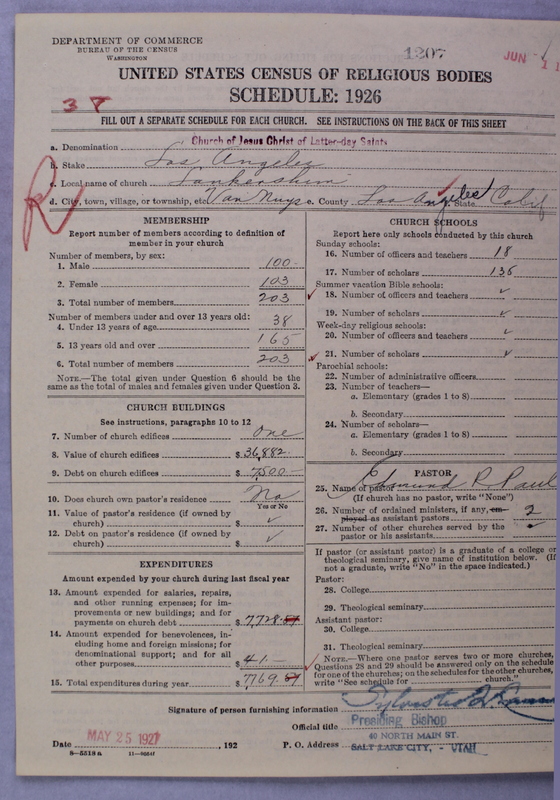 DEPARTMENT OF COMMERCE
BUREAU OF THE CENSUS
WASHINGTON
1207
JUN
UNITED STATES CENSUS OF RELIGIOUS BODIES
SCHEDULE: 1926
FILL OUT A SEPARATE SCHEDULE FOR EACH CHURCH. SEE INSTRUCTIONS ON THE BACK OF THIS SHEET
a. Denomination Church of Jesus Christ of Latter-day Saints
b. Stake Los Angeles
c. Local name of church Lankershim
d. City, town, village, or township, etc. Van Nuys e. County Los Angeles State Calif
MEMBERSHIP
Report number of members according to definition of
member in your church
Number of members, by sex:
1. Male 100-
2. Female 103
3. Total number of members 203
Number of members under and over 13 years old:
4. Under 13 years of age 38
5. 13 years old and over 165
6. Total number of members 203
NOTE.—The total given under Question 6 should be the
same as the total of males and females given under Question 3.
CHURCH BUILDINGS
See instructions, paragraphs 10 to 12
7. Number of church edifices One
8. Value of church edifices $36,882
9. Debt on church edifices $7,500
10. Does church own pastor's residence No
Yes or No
11. Value of pastor's residence (if owned by
church) $ ✓
12. Debt on pastor's residence (if owned by
church) $ ✓
EXPENDITURES
Amount expended by your church during last fiscal year
13. Amount expended for salaries, repairs,
and other running expenses; for im-
provements or new buildings; and for
payments on church debt $7,728.
14. Amount expended for benevolences, in-
cluding home and foreign missions; for
denominational support; and for all
other purposes $41.—
15. Total expenditures during year $7769.
CHURCH SCHOOLS
Report here only schools conducted by this church
Sunday schools:
16. Number of officers and teachers 18
17. Number of scholars 136
Summer vacation Bible schools:
18. Number of officers and teachers ✓
19. Number of scholars ✓
Week-day religious schools:
20. Number of officers and teachers ✓
21. Number of scholars ✓
Parochial schools:
22. Number of administrative officers
23. Number of teachers—
a. Elementary (grades 1 to 8)
b. Secondary
24. Number of scholars—
a. Elementary (grades 1 to 8)
b. Secondary
PASTOR
25. Name of pastor Edmund R Paul
(If church has no pastor, write "None")
26. Number of ordained ministers, if any, em-
ployed as assistant pastors 2
27. Number of other churches served by the
pastor or his assistants
If pastor (or assistant pastor) is a graduate of a college or
theological seminary, give name of institution below. (If
not a graduate, write "No" in the space indicated.)
Pastor:
28. College
29. Theological seminary
Assistant pastor:
30. College
31. Theological seminary
NOTE.—Where one pastor serves two or more churches,
Questions 28 and 29 should be answered only on the schedule
for one of the churches; on the schedules for the other churches,
write "See schedule for church."
Signature of person furnishing information Sylvester Q. Cannon
Official title Presiding Bishop
Date MAY 25 1927, 192 P. O. Address 40 NORTH MAIN ST.
SALT LAKE CITY, - UTAH
8—5518a 11—9084f